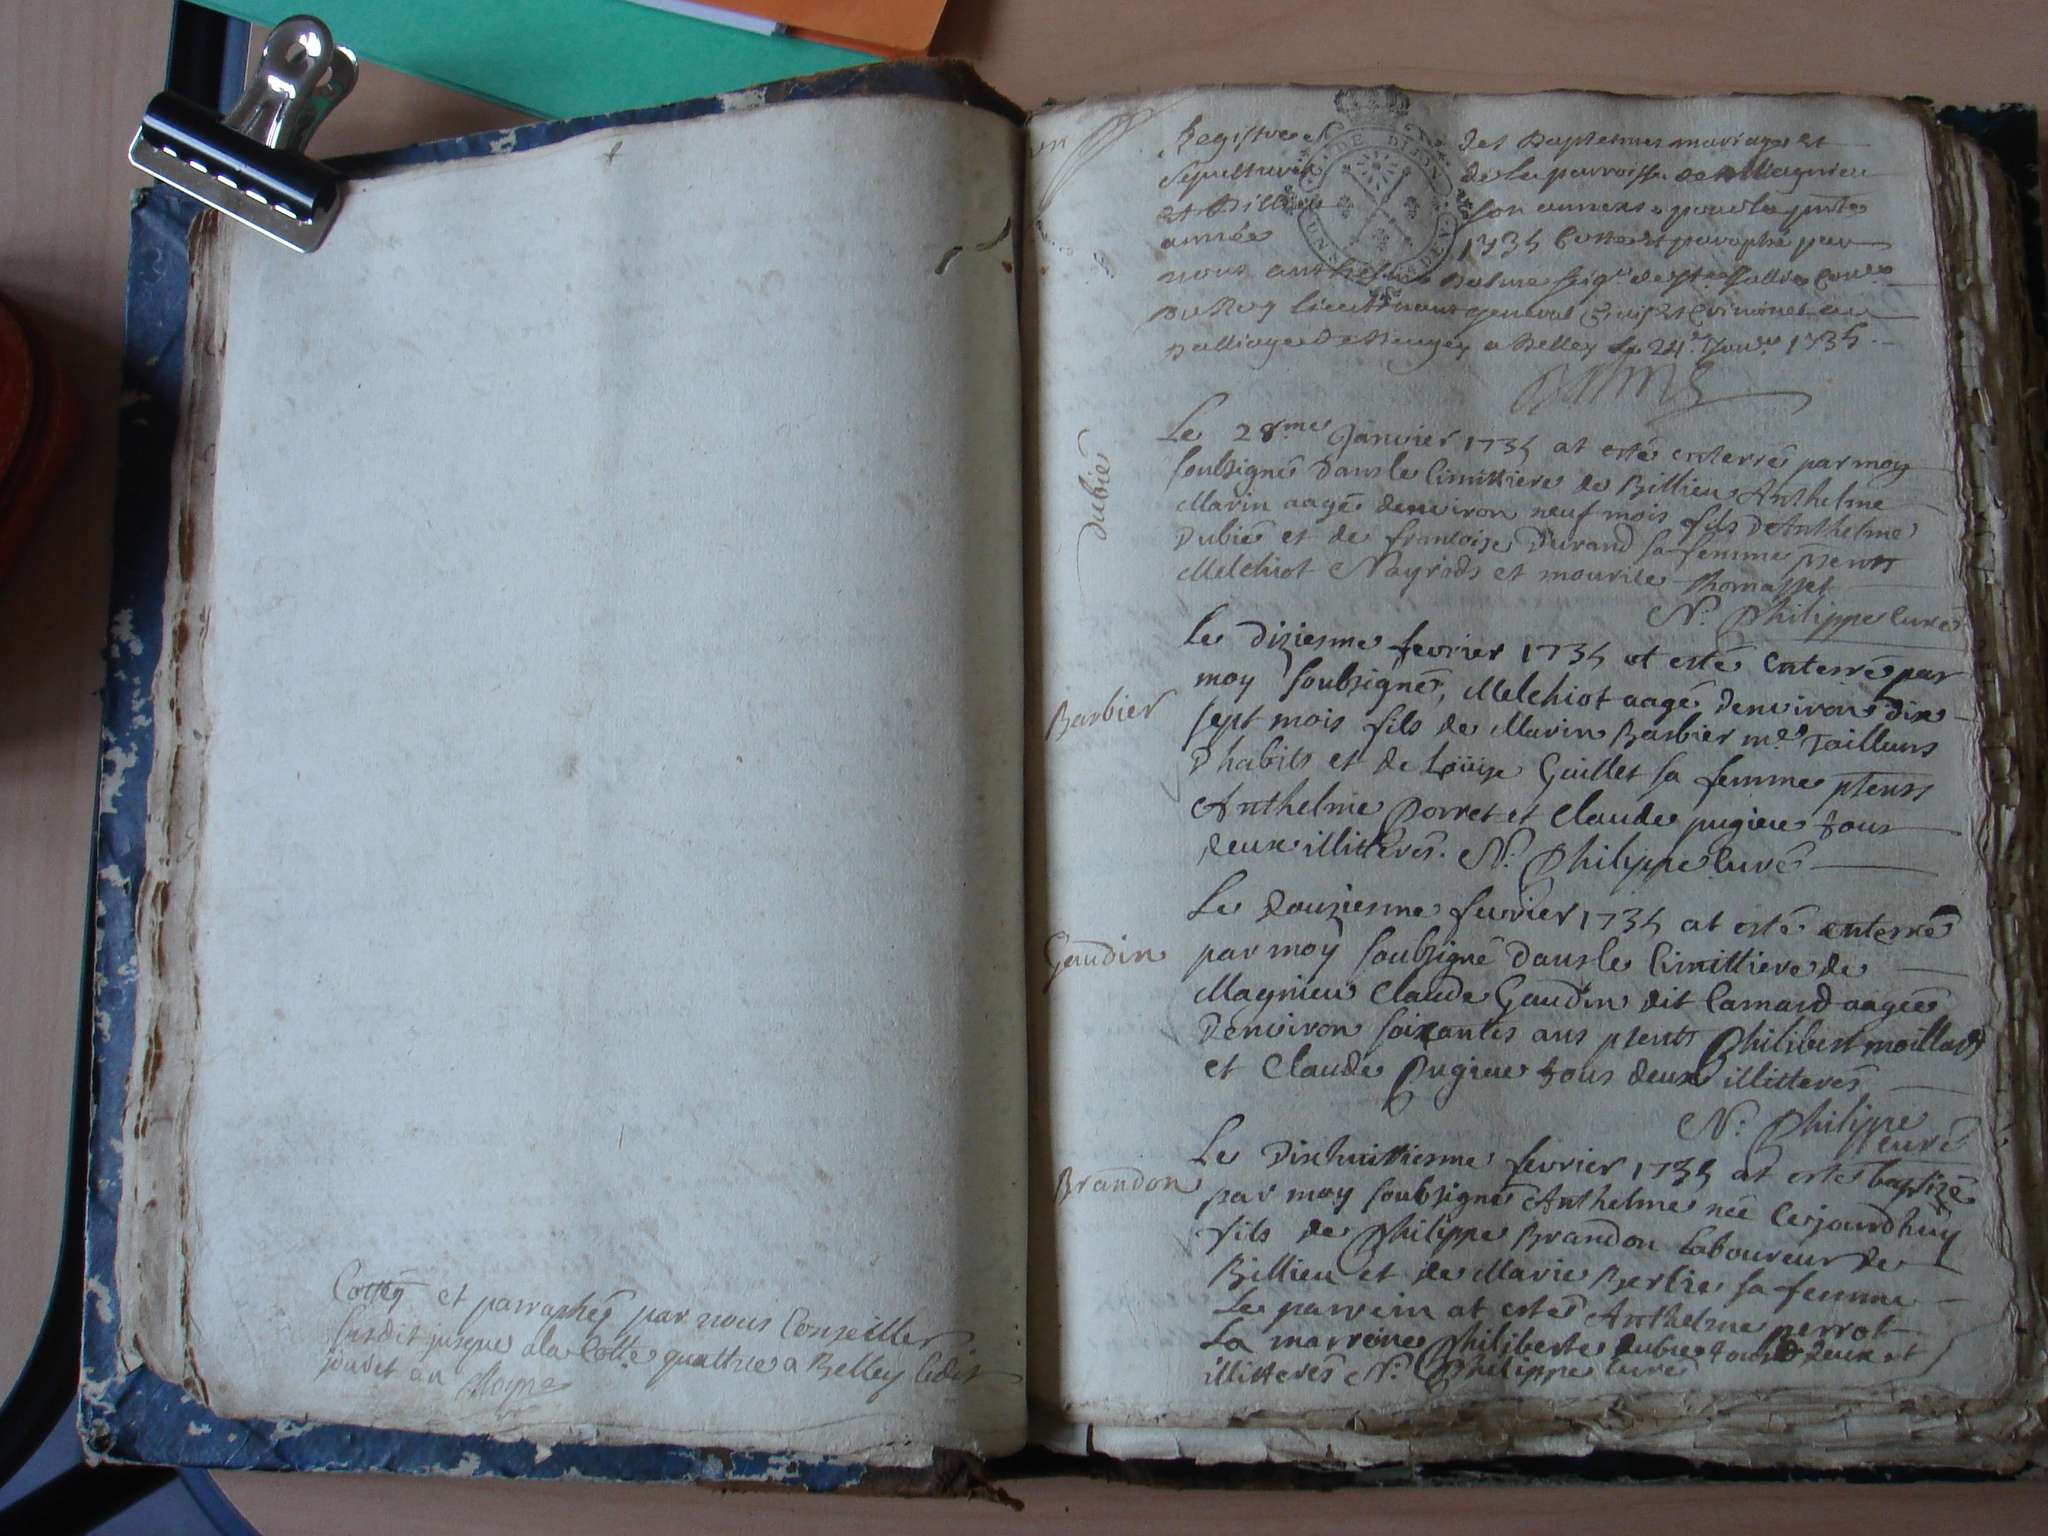 Cottéz et parraphéz par nous Conseiller
susdit jusque a la Cotte quattre a Belley ledit
jour et an Moyne
Registre des Baptesmes mariages et
sepultures de la parroisse de Magnieu
et Billieu son annexe pour la pnte
année 1735 Cotté et paraphé par
nous anthelme Balme seigr de Ste Consr
Du Roy lieutenant general Civil et Criminel au
Balliage de Beugey a Belley le 24e Janvr 1735
Balme
Dubié
Le 28me Janvier 1735 at esté enterré par moy
soubsigné dans le Cimittiere de Billieu Anthelme
Marin aagé denviron neuf mois fils D'Anthelme
Dubié et de francoise Durand sa femme pients
Melchiot Nayrids et mourile Thomasset
N. Philippe Curé
Barbier
Le diziesme fevrier 1735 at esté Enterré par
moy soubsigné, Melchiot aagé denviron dix
sept mois fils de Marin Barbier me Tailleurs
D'habits et de Loüise Guillet sa femme ptents
Anthelme Porret et Claude pugieu tous
deux illitterés. N. Philippe Curé
Gaudin
Le douziesme fevrier 1735 at esté enterré
par moy soubsigné Dans le Cimittiere de
Magnieu Claude Gaudin dit Camard aagée
Denviron soixantes ans ptents Philibert moillard
et Claude Pugieu tous deux illitterés
N. Philippe
curé
Brandon
Le Dixhuittiesme fevrier 1735 at esté baptizé
par moy soubsigné Anthelme née Cejourdhuy
fils de Philippe Brandon Laboureur de
Billieu et de Marie Berlie sa femme
Le parrein at estés Anthelme perrot
La marreine Philiberte Dubie tous deux
illitterés N. Philippe Curé